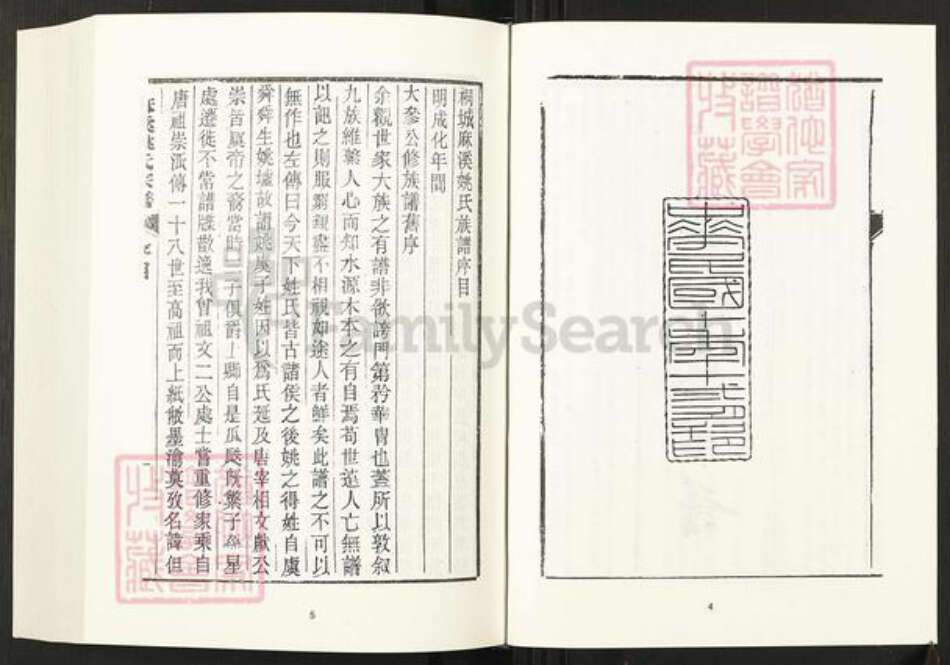 桐城麻溪姚氏族譜序目
明成化年間
大參公修族譜舊序
余觀世家大族之有譜非欲誇門第矜華胄也蓋所以敦叙
九族維繫人心而知水源木本之有自焉苟世遠人亡無譜
以記之則服窮親盡不相視如途人者鮮矣此譜之不可以
無作也左傳曰今天下姓氏皆古諸侯之後姚之得姓自虞
舜舜生姚墟故謂姚虞子姓因以爲氏延及唐宰相文獻公
崇皆虞帝之裔當時三子俱爵上卿自是瓜瓞既繁子孫星
處遷徙不常譜牒散逸我曾祖文二公處士嘗重修家乘自
唐祖崇派傳一十八世至高祖而上紙敝墨渝莫攷名諱但
麻溪姚氏宗譜
5
4
FamilySearch
譜學會
收藏